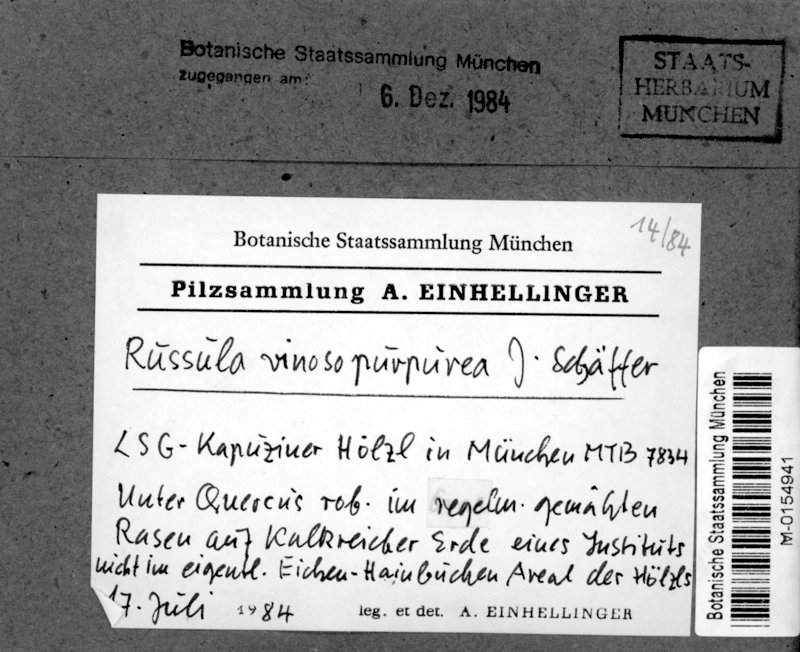 Botanische Staatssammlung München
zugegangen am:
6. Dez. 1984
STAATS-
HERBARIUM
MÜNCHEN
14/84
Botanische Staatssammlung München
Pilzsammlung A. EINHELLINGER
Russula vinosopurpurea J. Schäffer
LSG-Kapuziner Hölzl in München MTB 7834
Unter Quercus rob. im regelm. gemähten
Rasen auf Kalkreicher Erde eines Instituts
nicht im eigentl. Eichen-Hainbuchen Areal des Hölzls
17. Juli 1984 leg. et det. A. EINHELLINGER
Botanische Staatssammlung München
M-0154941